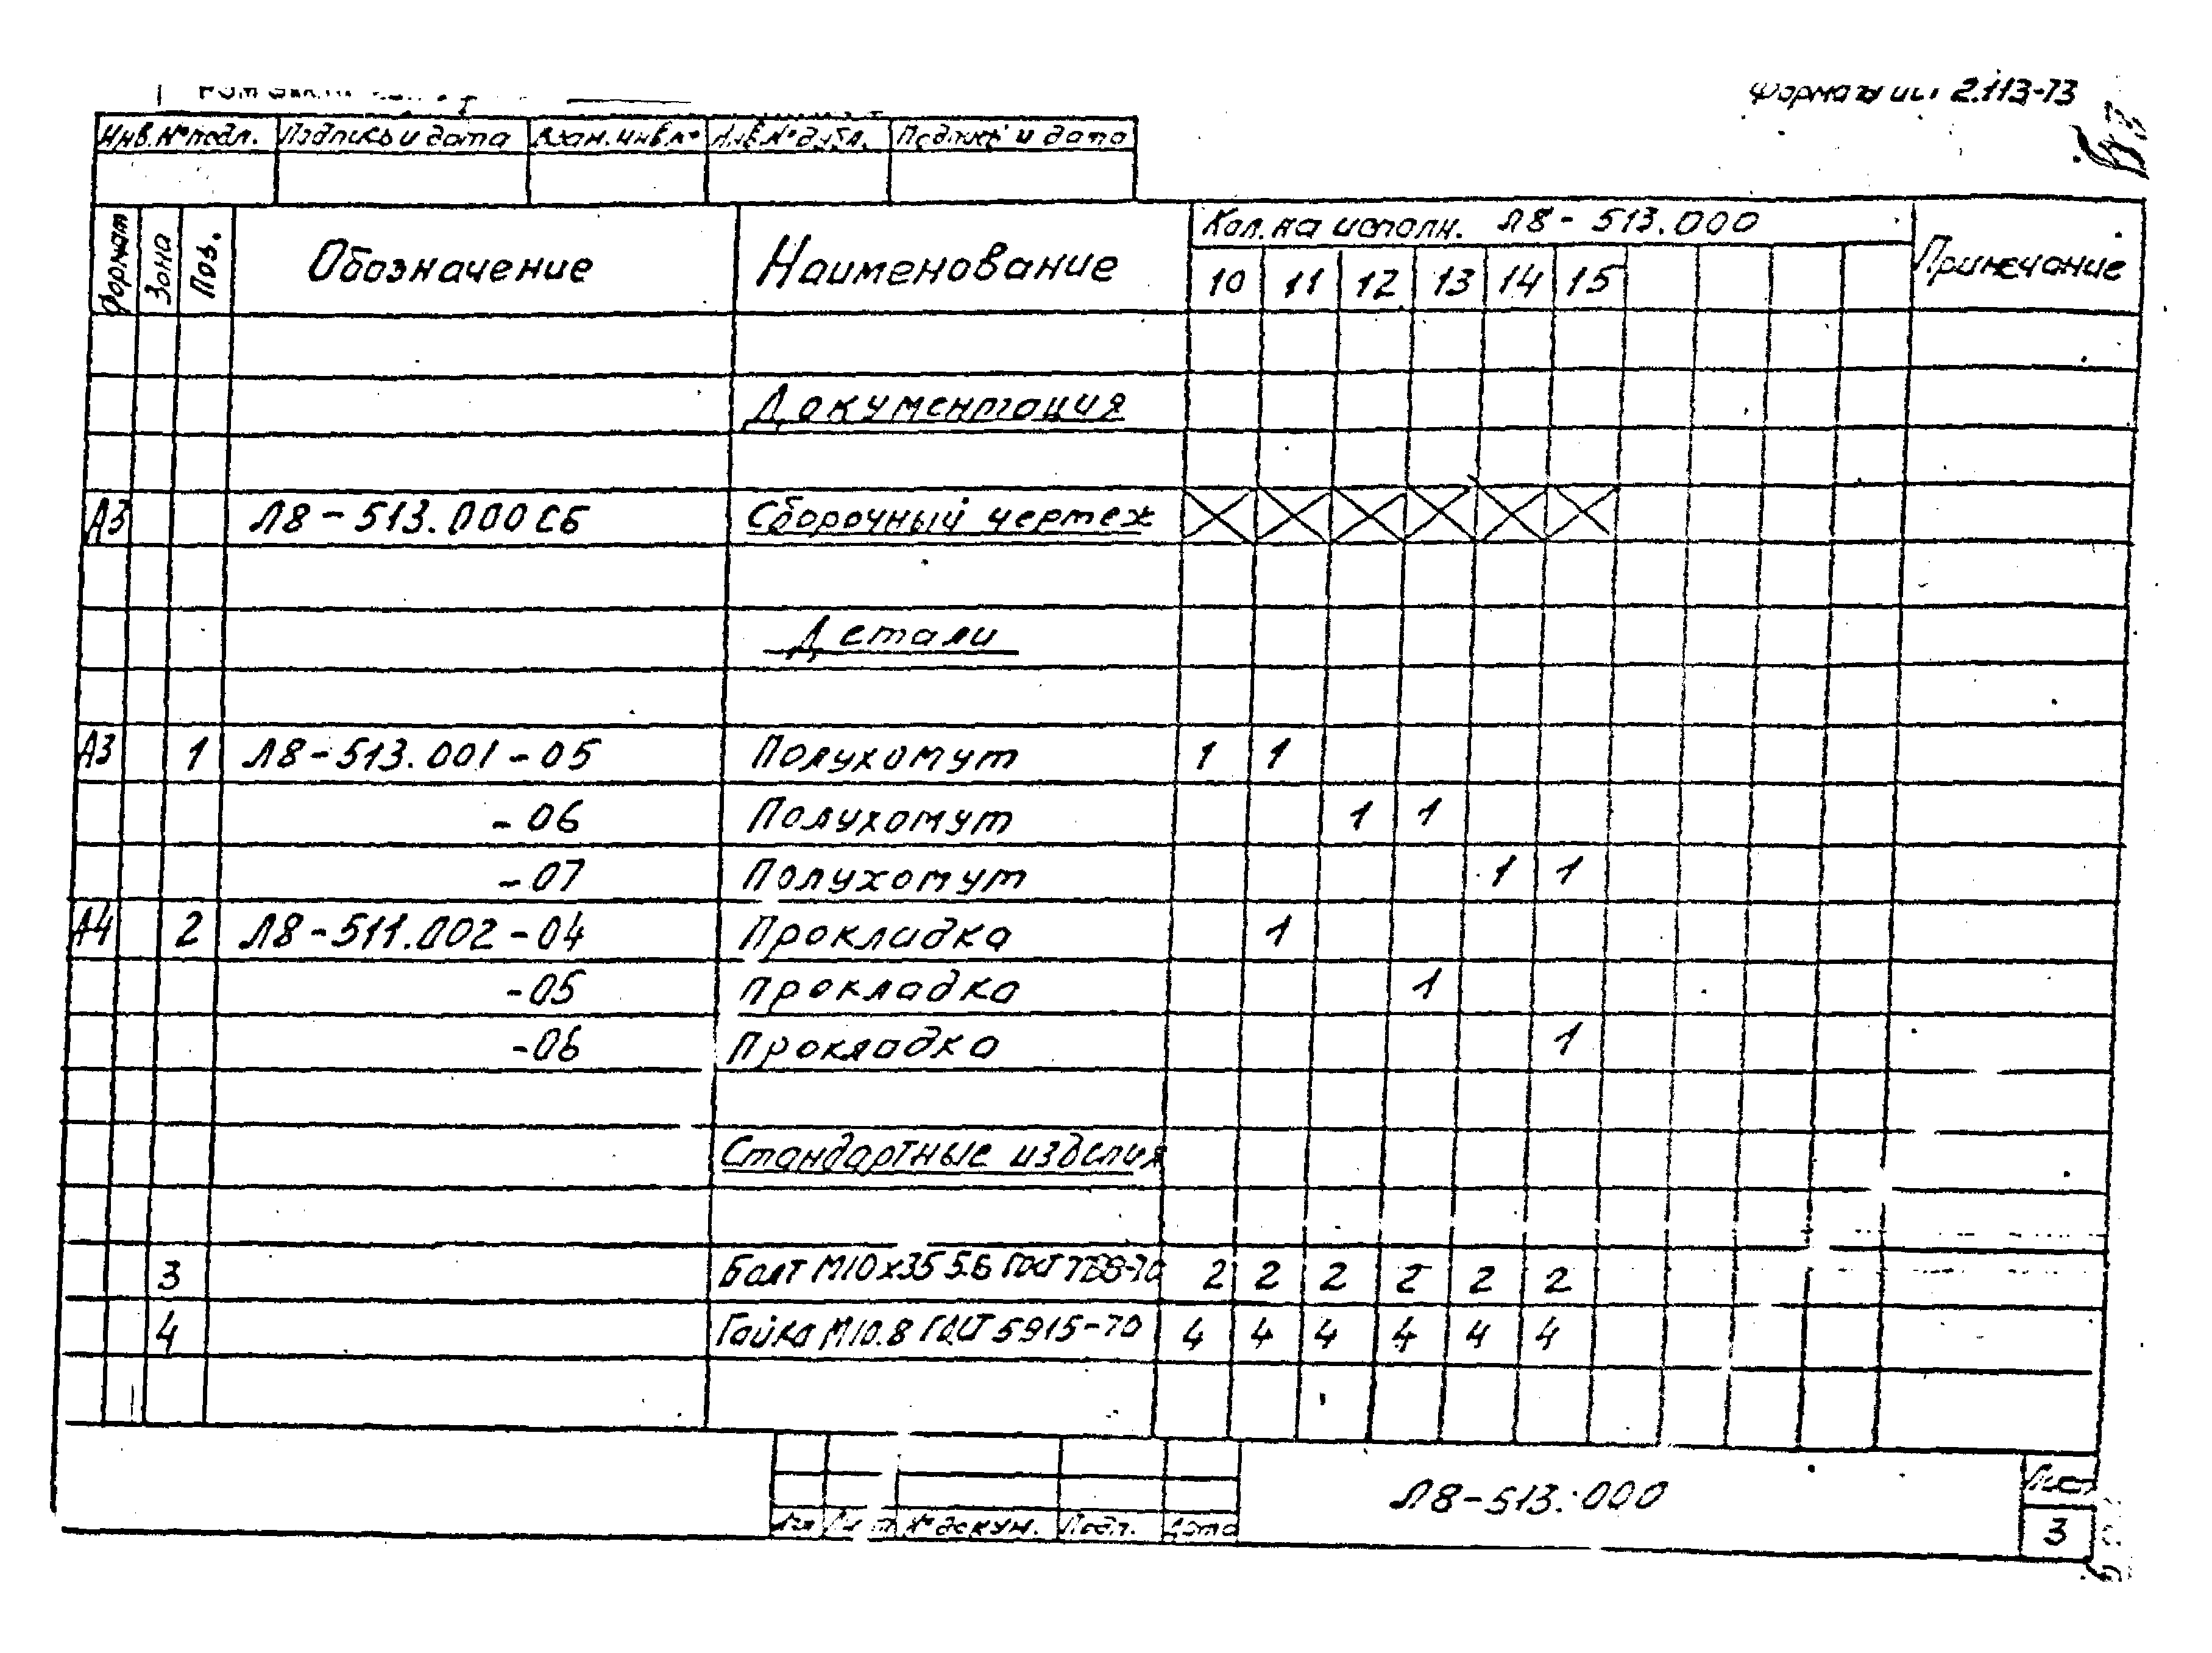 2.113-73
Инв.№ подл. Подпись и дата Взам. инв.№ Инв.№ дубл. Подпись и дата
Формат Зона Поз. Обозначение Наименование Кол. на исполн. Л8-513.000 Примечание
10 11 12 13 14 15
Документация
А3 Л8-513.000СБ Сборочный чертеж
Детали
А3 1 Л8-513.001-05 Полухомут 1 1
-06 Полухомут 1 1
-07 Полухомут 1 1
А4 2 Л8-511.002-04 Прокладка 1
-05 Прокладка 1
-06 Прокладка 1
Стандартные изделия
3 Болт М10х35 5.6 ГОСТ 2 2 2 2 2 2
4 Гайка М10.8 ГОСТ 5915-70 4 4 4 4 4 4
Л8-513.000 Лист
Изм Лист № докум. Подп. Дата 3